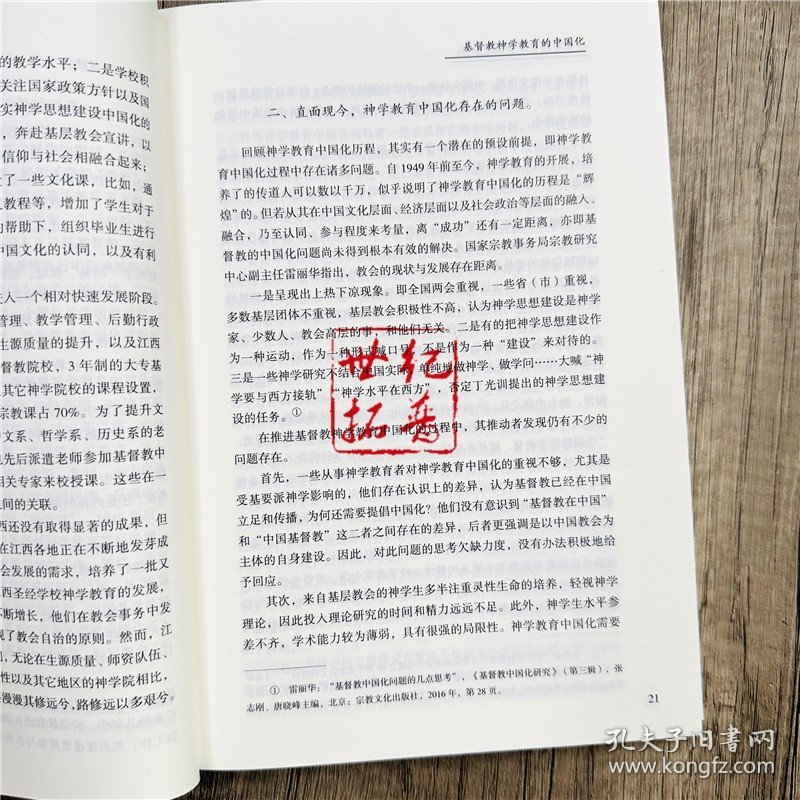 的教学水平；二是学校积
关注国家政策方针以及国
实神学思想建设中国化的
，奔赴基层教会宣讲，以
信仰与社会相融合起来；
了一些文化课，比如，通
教程等，增加了学生对于
的帮助下，组织毕业生进行
中国文化的认同，以及有利
入一个相对快速发展阶段。
管理、教学管理、后勤行政
生源质量的提升，以及江西
督教院校，3 年制的大专基
其它神学院校的课程设置，
宗教课占 70%。为了提升文
中文系、哲学系、历史系的老
也先后派遣老师参加基督教中
相关专家来校授课。这些在一
之间的关联。
西还没有取得显著的成果，但
在江西各地正在不断地发芽成
会发展的需求，培养了一批又
西圣经学校神学教育的发展，
不断增长，他们在教会事务中发
现了教会自治的原则。然而，江
，无论在生源质量、师资队伍、
性以及其它地区的神学院相比，
漫漫其修远兮，路修远以多艰兮。
基督教神学教育的中国化
二、直面现今，神学教育中国化存在的问题。
回顾神学教育中国化历程，其实有一个潜在的预设前提，即神学教
育中国化过程中存在诸多问题。自 1949 年前至今，神学教育的开展，培
养了的传道人可以数以千万，似乎说明了神学教育中国化的历程是“辉
煌”的。但若从其在中国文化层面、经济层面以及社会政治等层面的融入、
融合，乃至认同、参与程度来考量，离“成功”还有一定距离，亦即基
督教的中国化问题尚未得到根本有效的解决。国家宗教事务局宗教研究
中心副主任雷丽华指出，教会的现状与发展存在距离。
一是呈现出上热下凉现象。即全国两会重视，一些省（市）重视，
多数基层团体不重视，基层教会积极性不高，认为神学思想建设是神学
家、少数人、教会高层的事，和他们无关。二是有的把神学思想建设作
为一种运动，作为一种形式喊口号，不是作为一种“建设”来对待的。
三是一些神学研究不结合中国实际，单纯地做神学、做学问……大喊“神
学要与西方接轨”“神学水平在西方”，否定丁光训提出的神学思想建
设的任务。①
在推进基督教神学教育中国化的过程中，其推动者发现仍有不少的
问题存在。
首先，一些从事神学教育者对神学教育中国化的重视不够，尤其是
受基要派神学影响的，他们存在认识上的差异，认为基督教已经在中国
立足和传播，为何还需要提倡中国化？他们没有意识到“基督教在中国”
和“中国基督教”这二者之间存在的差异，后者更强调是以中国教会为
主体的自身建设。因此，对此问题的思考欠缺力度，没有办法积极地给
予回应。
其次，来自基层教会的神学生多半注重灵性生命的培养，轻视神学
理论，因此投入理论研究的时间和精力远远不足。此外，神学生水平参
差不齐，学术能力较为薄弱，具有很强的局限性。神学教育中国化需要
① 雷丽华：“基督教中国化问题的几点思考”，《基督教中国化研究》（第三辑），张
志刚、唐晓峰主编，北京：宗教文化出版社，2016 年，第 28 页。
21
世纪
拓普
孔夫子旧书网
www.kongfz.com